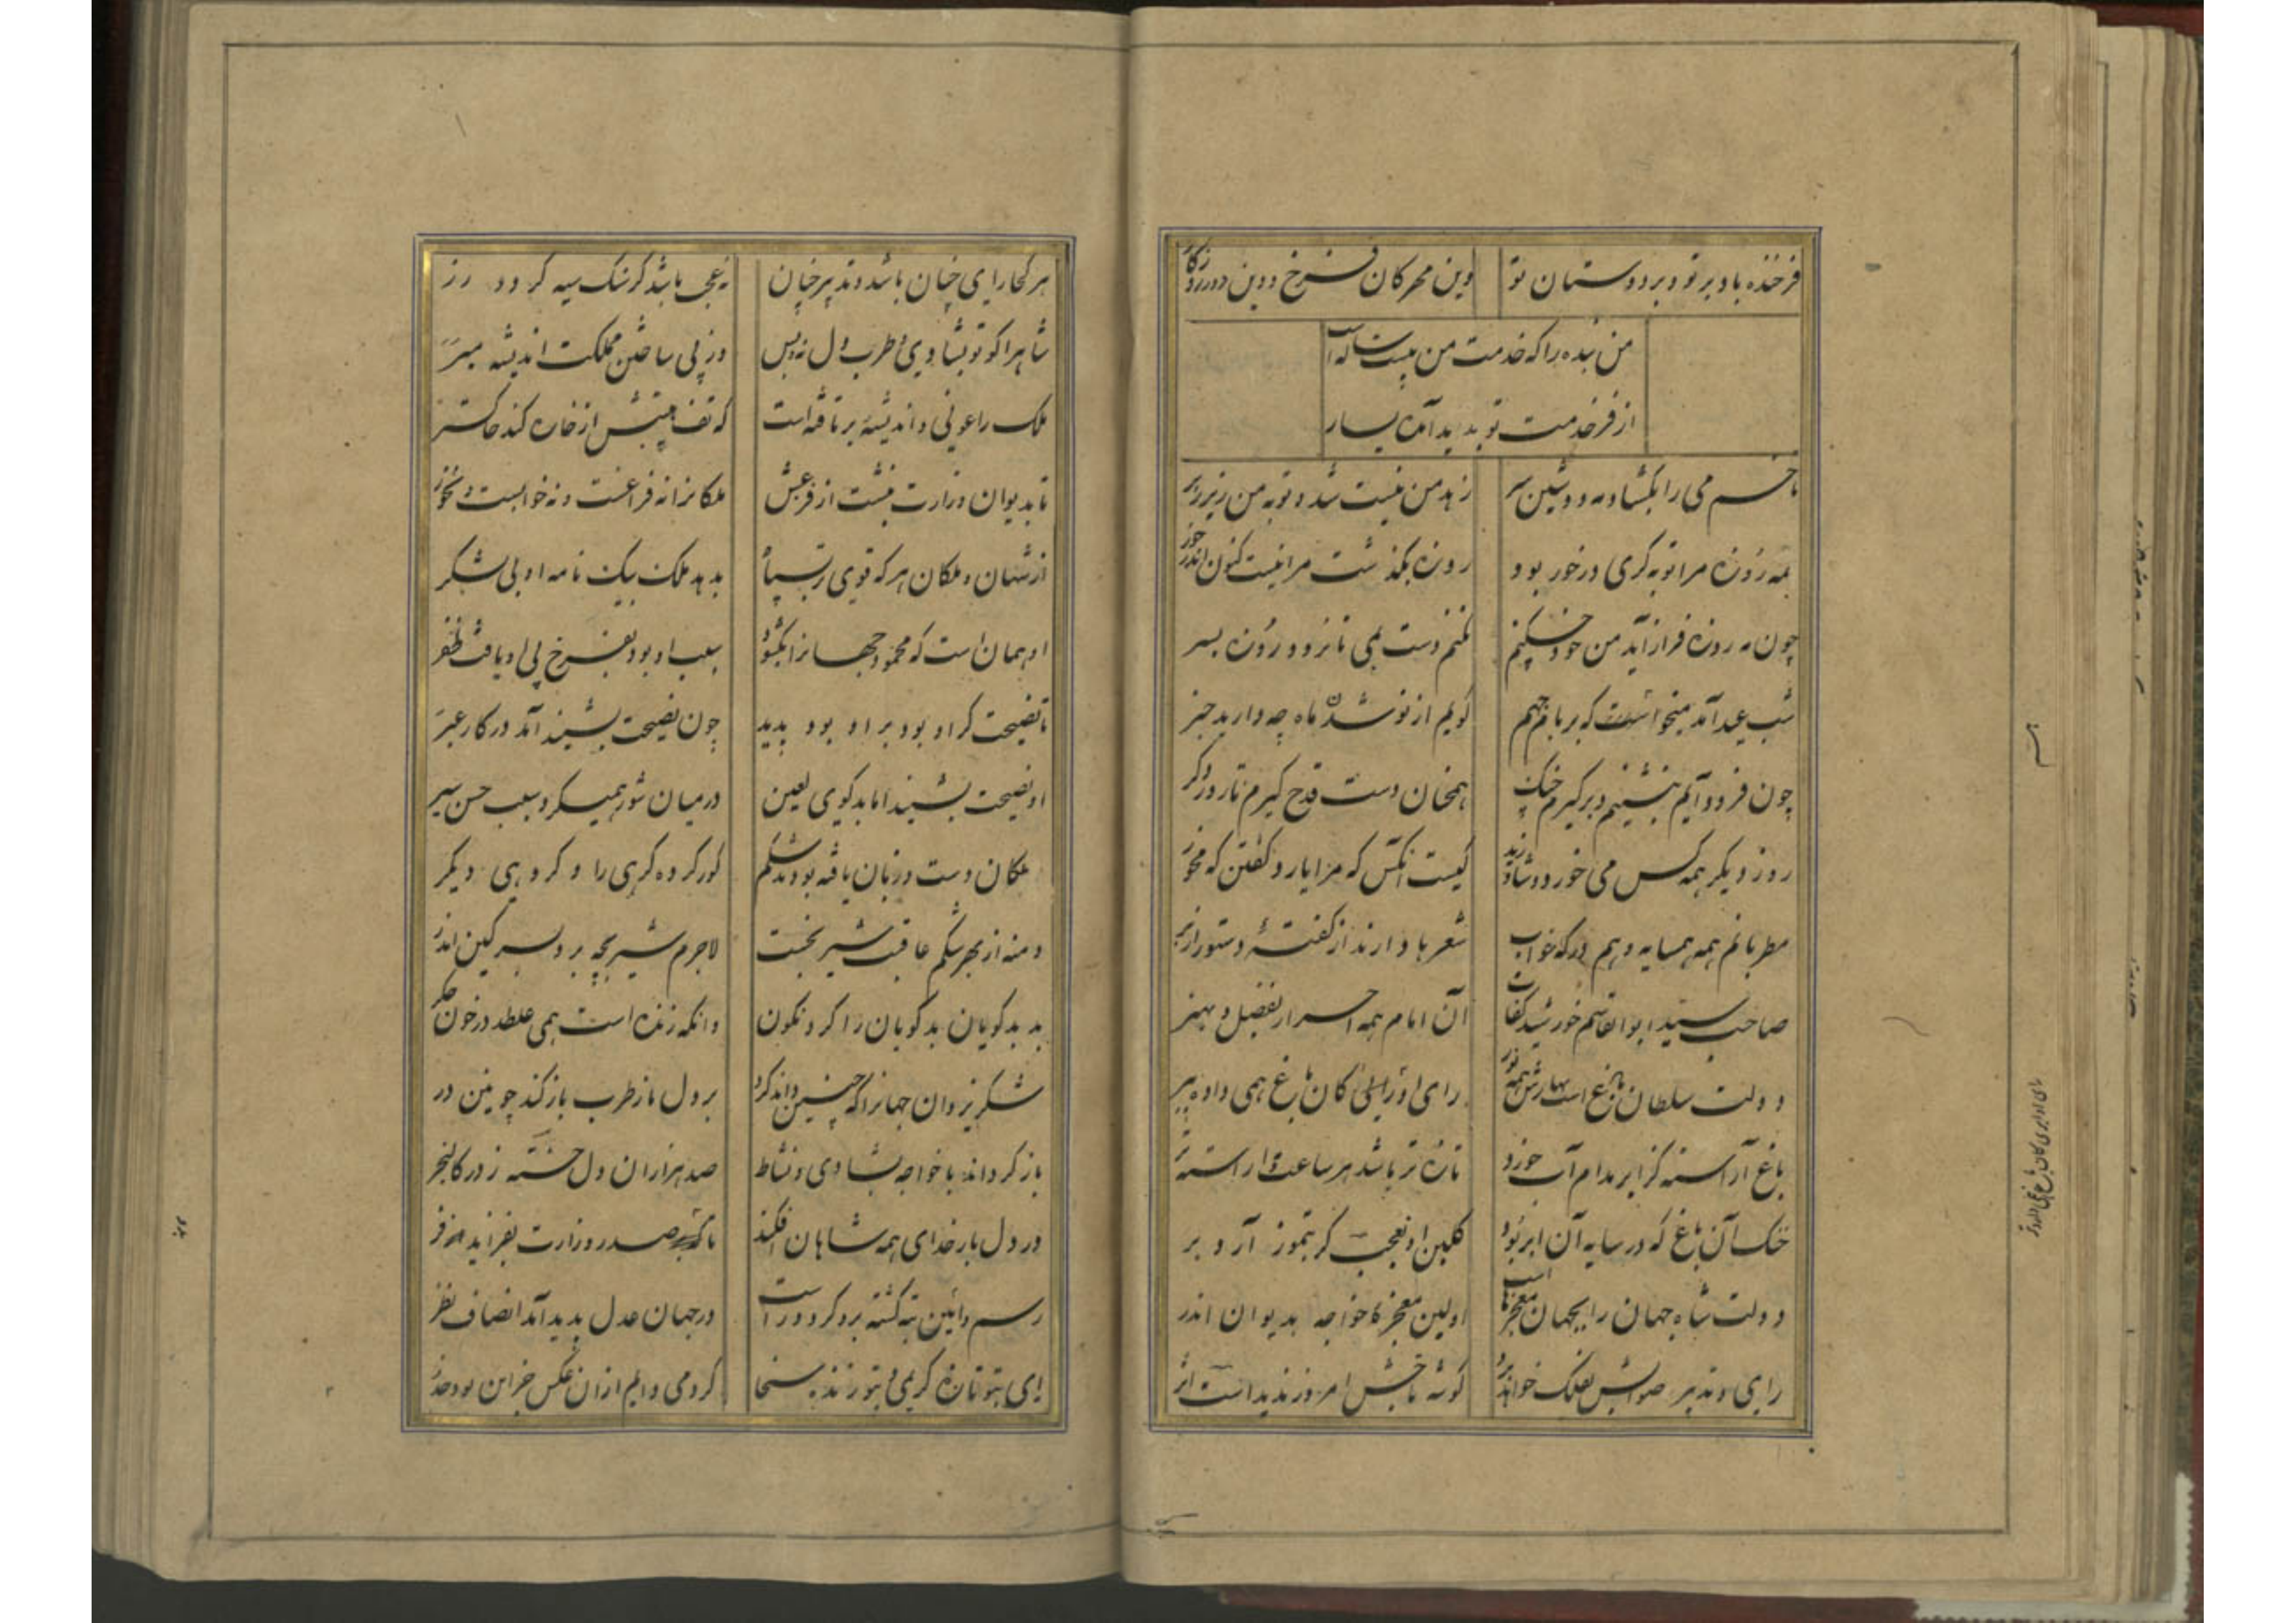 فرخنده باد بر تو و بر دوستان تو وین مهرکان فرخ و وین دور روزکار
من بنده را که خدمت من بیست ساله است
از فر خدمت تو بدید آمده یسار
تا خم می را بکشاد مه دوشین سر زهد من نیست شد و توبه من زیر و زبر
بمه روزه مرا توبه کری درخور بود روزه بکذشت مرا نیست کنون اندر خور
چون مه روزه فراز آید من خود نکنم نکنم دست بمی تا نرود روزه بسر
شب عید آمد میخواست که بر بام جهم کویم از نو شدن ماه چه دارید خبر
چون فرود آیم بنشینم و بر کیرم چنک همچنان دست قدح کیرم تا روز دکر
روز دیکر همه کس می خورد و شاد زید کیست آنکس که مرا یارد کفتن که مخور
مطربانم همه همسایه و هم درکه خواب شعر با دارند از کفتهٔ دستور از بر
صاحب سید ابوالقاسم خورشید کفات آن امام همه احرار بفضل و بهنر
دولت سلطان باغ است بهارش همه نور رای او رایی کان باغ همی داده ببر
باغ آراسته کز ابر مدام آب خورد تازه تر باشد هر ساعت و آراسته تر
خنک آن باغ که در سایه آن ابر بود کلبن او نعجب کر بتموز آرد بر
دولت شاه جهان را بجهان معجزهاست اولین معجز ناخواجه بدیوان اندر
رای و تدبیر صوابش بفلک خواهد برد کوشه تاجش امروز بدید است اثر
هر کجا رای چنان باشد و تدبیر چنان نه عجب باشد کر سنک سیه کردد زر
شاه را کو تو بشادی و طرب دل نه و بس وز پی ساختن مملکت اندیشه مبر
ملک را عونی و اندیشه بر تافته است که تف هیبتش از خاره کند خاکستر
تا بدیوان وزارت بنشست از فزعش ملکانرا نه فراغست و نه خوابست و نه خور
از شهان و ملکان هر که قوی تر بسپاه بدهد ملک بیک نامه او بی لشکر
او همان است که محمود جهانرا بکشود بسبب او بود بفرخ پی او یافت ظفر
تا نصیحت کر او بود بر او بود پدید چون نصیحت بشنید آمد در کار عبر
او نصیحت بشنید اما بدکوی لعین در میان شور همیکرد بسبب حسن سیر
ملکان دست و زبان یافته بودند شکم کور کرده کرهی را و کروهی دیکر
دمنه از بهر شکم عاقبت شیر نجست لاجرم شیر بچه برد بسر کین اندر
بد بدکویان بدکویان را کرد نکون وانکه زنده است همی غلطد در خون جکر
شکر یزدان جهانرا که چنین داند کرد بر دل ما ز طرب باز کند چونین در
باز کرداند با خواجه بشادی و نشاط صد هزاران دل خسته ز در کالنجر
در دل بار خدای همه شاهان فکند تا بصدر وزارت بفزاید فر
رسم و آئین تبه کشته بدو کردد راست در جهان عدل پدید آمد انصاف و نظر
ای بتو تازه کریمی و بتو زنده سخا
رای او ابری کان باغ